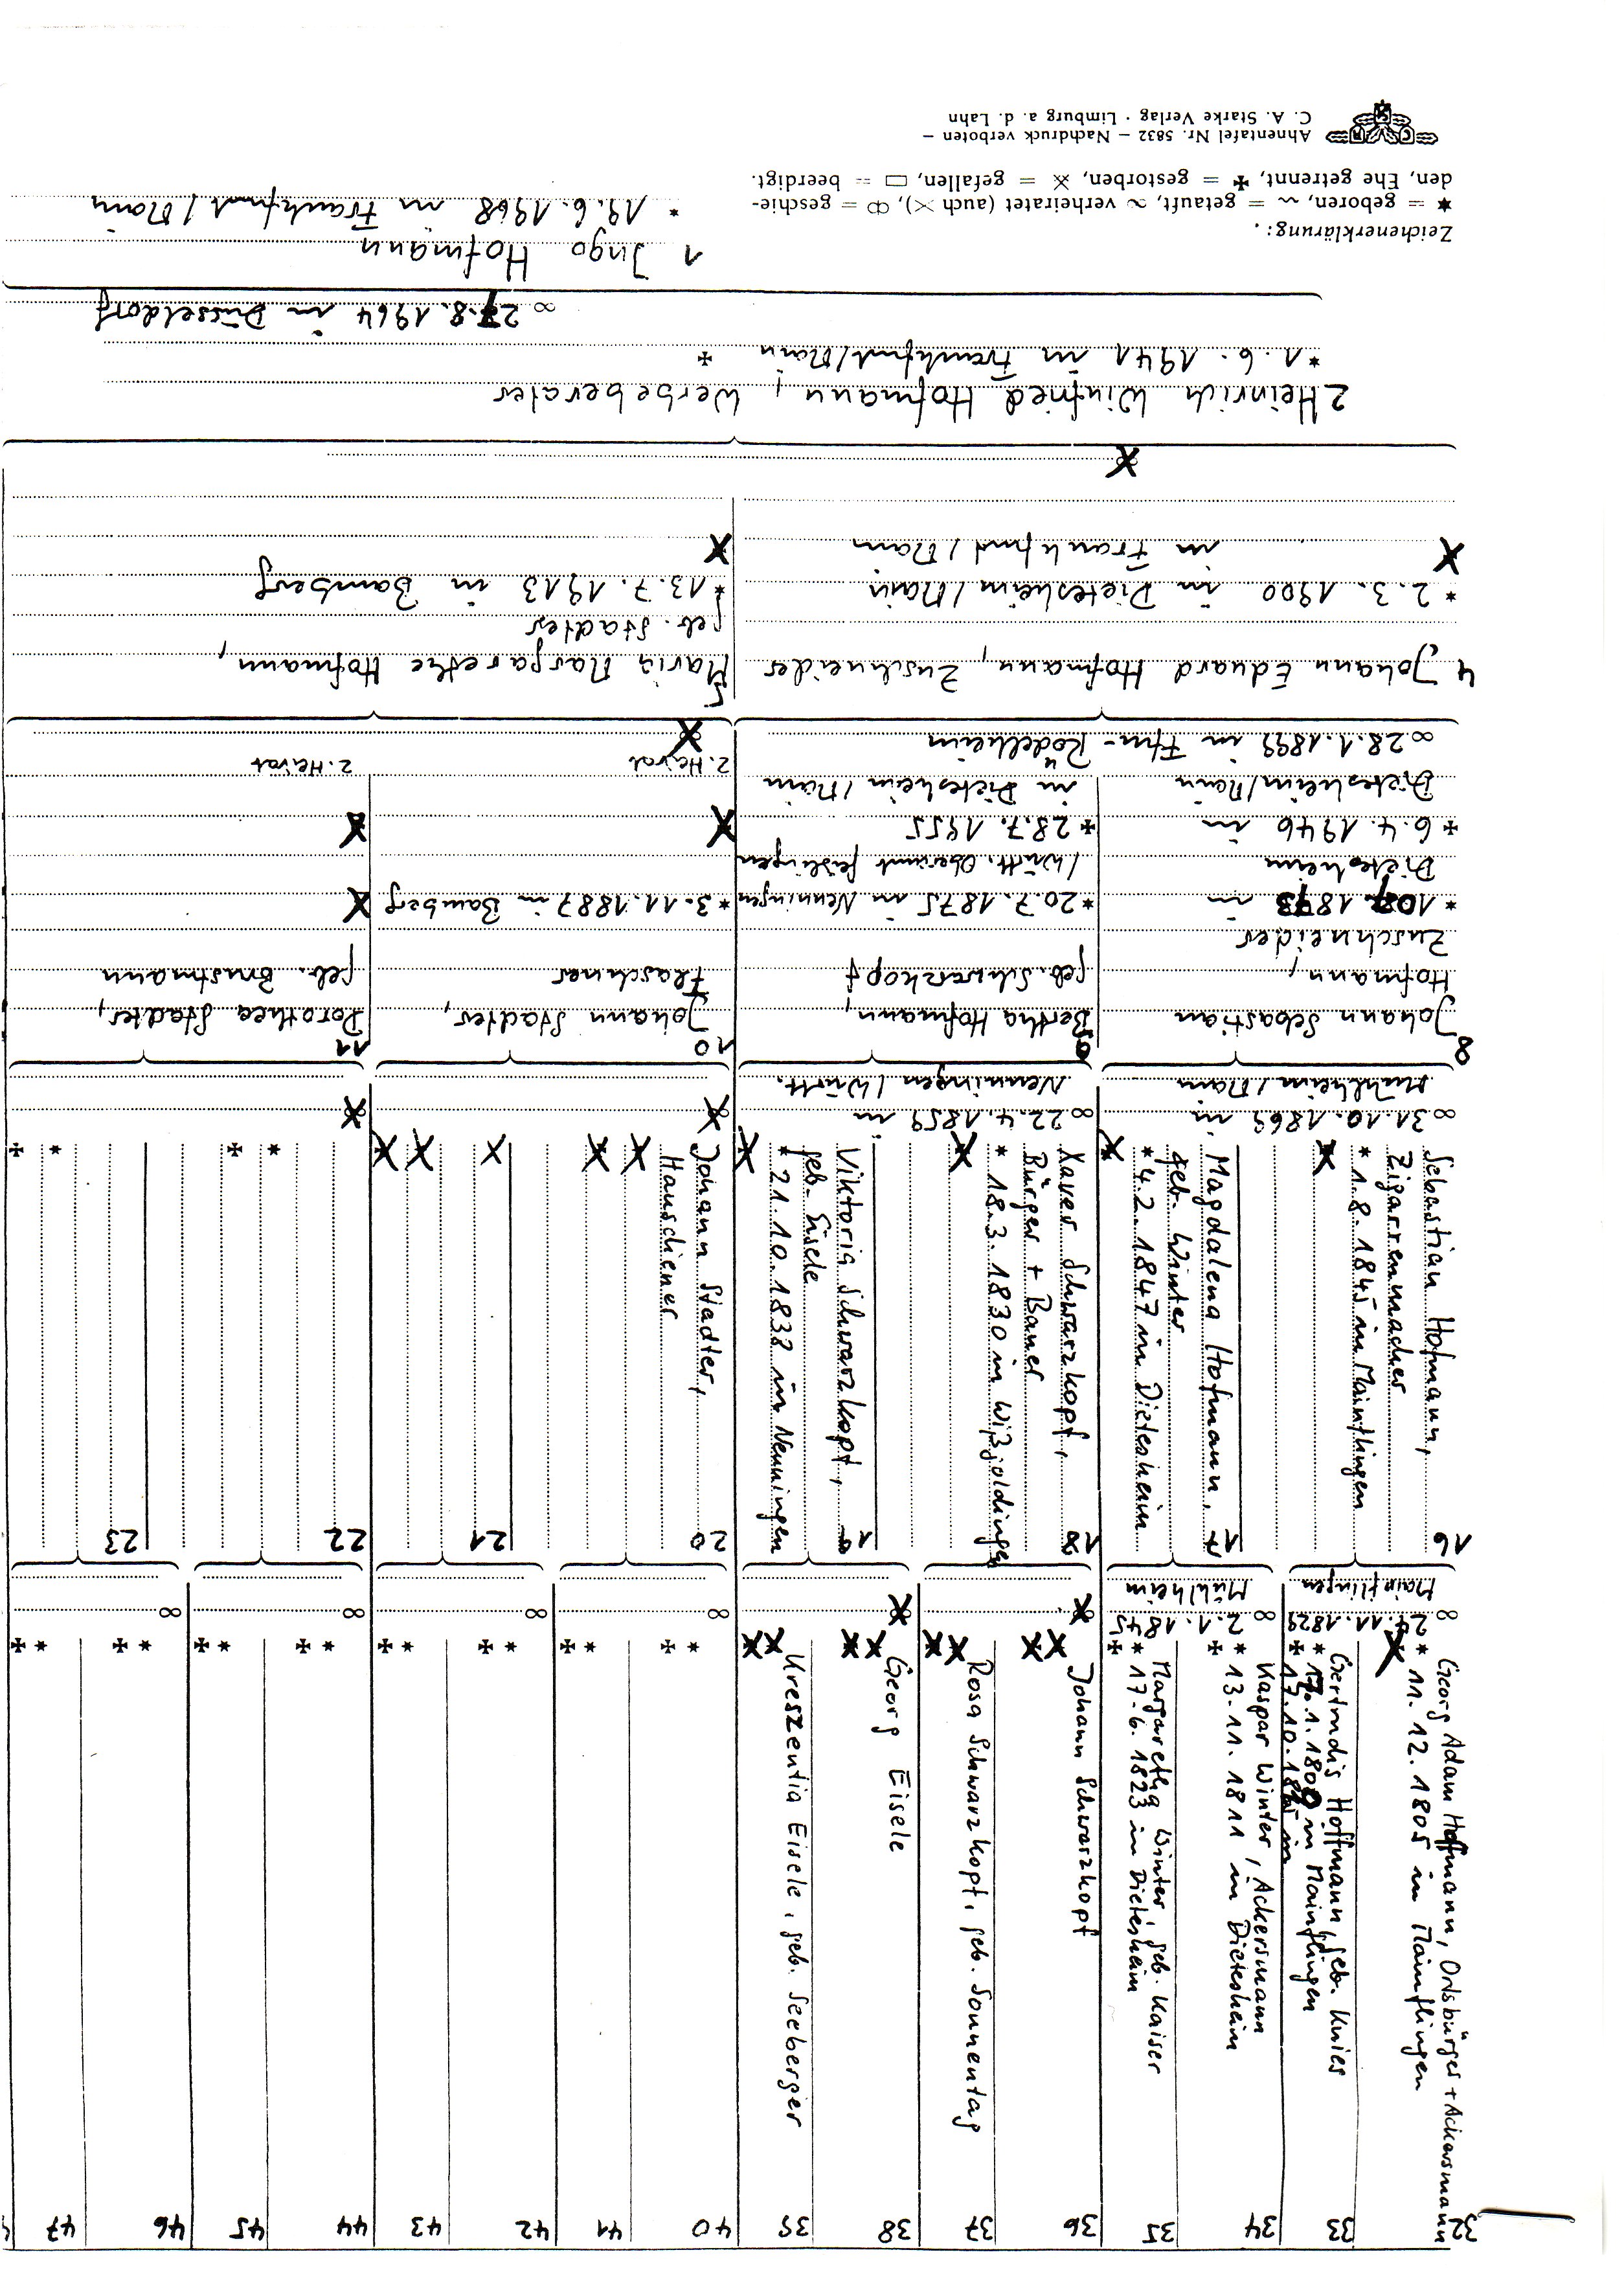 32
Georg Adam Hoffmann, Ortsbürger + Ackersmann
* 11. 12. 1805 in Mainflingen
∞ 11. 1829
Mainflingen
33
Gertrudis Hoffmann, geb. Knies
in Mainflingen
34
Kaspar Winter, Ackersmann
* 13. 11. 1811 in Dietesheim
✠
∞ 2. 1. 1845
Mühlheim
35
Margaretha Winter, geb. Kaiser
* 17. 6. 1823 in Dietesheim
✠
36
Johann Schwarzkopf
37
Rosa Schwarzkopf, geb. Sonnentag
38
Georg Eisele
39
Kreszentia Eisele, geb. Seeberger
40
* ✠
∞
41
* ✠
42
* ✠
∞
43
* ✠
44
* ✠
∞
45
* ✠
46
* ✠
∞
47
* ✠
16
Sebastian Hofmann,
Zigarrenmacher
* 1. 8. 1845 in Mainflingen
∞ 31. 10. 1869 in
Mühlheim/Main
17
Magdalena Hofmann,
geb. Winter
* 4. 2. 1847 in Dietesheim
18
Xaver Schwarzkopf,
Bürger + Bauer
* 18. 3. 1830 in Wißgoldingen
∞ 22. 4. 1859 in
Nenningen/Württ.
19
Viktoria Schwarzkopf,
geb. Eisele
* 21. 10. 1838 in Nenningen
20
Johann Stadter,
21
22
* ✠
23
* ✠
8
Johann Sebastian
Hofmann,
Zuschneider
* 1873 in
Dietesheim
✠ 6. 4. 1946 in
Dietesheim/Main
∞ 28. 1. 1899 in Ffm-Rödelheim
9
Bertha Hofmann,
geb. Schwarzkopf
* 20. 7. 1875 in Nenningen
/Württ. Oberamt Geislingen
✠ 28. 7. 1955
in Dietesheim/Main
10
Johann Stadter,
Flaschner
* 3. 11. 1887 in Bamberg
2. Heirat
11
Dorothea Stadter,
geb. Brustmann
2. Heirat
4
Johann Eduard Hofmann, Zuschneider
* 2. 3. 1900 in Dietesheim/Main
in Frankfurt/Main
5
Maria Margarethe Hofmann,
geb. Stadter
* 13. 7. 1913 in Bamberg
2 Heinrich Winfried Hofmann, Werbeberater
* 1. 6. 1941 in Frankfurt/Main ✠
∞ 27. 8. 1964 in Düsseldorf
1 Ingo Hofmann
* 19. 6. 1968 in Frankfurt/Main
Zeichenerklärung:
★ = geboren, ~ = getauft, ∞ verheiratet (auch ✕), ⚮ = geschie-
den, Ehe getrennt, ✠ = gestorben, ⚔ = gefallen, ▭ = beerdigt.
Ahnentafel Nr. 5832 – Nachdruck verboten –
C. A. Starke Verlag · Limburg a. d. Lahn